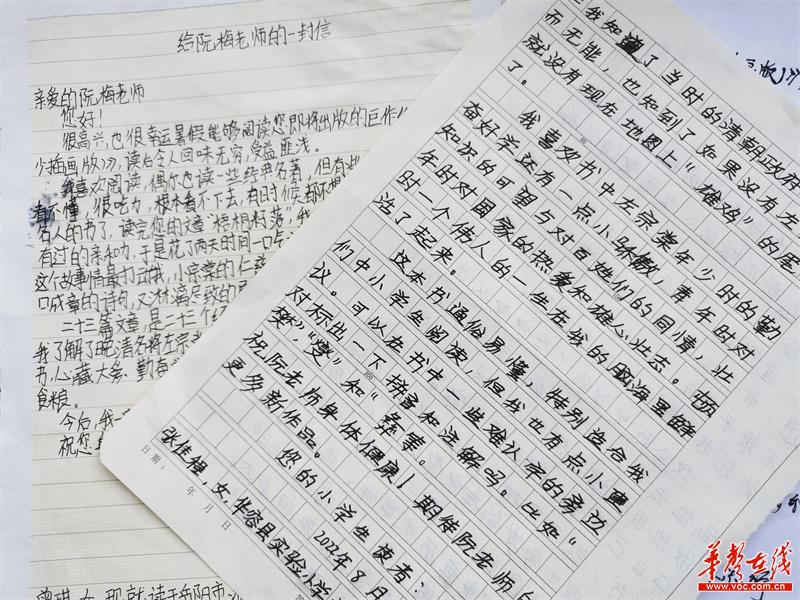 给阮梅老师的一封信
亲爱的阮梅老师
您好!
很高兴,也很幸运暑假能够阅读您即将出版的巨作
少插画版》,读后令人回味无穷,受益匪浅。
我喜欢阅读,偶尔也读一些经典名著,但有
看不懂,很吃力,根本看不下去,有时候都不想
名人的书了,读完您的文章“梧桐籽落”,我
有过的亲和力,于是花了两天时间一口气
这个故事情最打动我,小宗棠的仁慈
口成章的诗句,又淋漓尽致的
二十三篇文章,是二十三个
我了解了晚清名将左宗
书,心藏大务,勤奋
食粮。
今后,我
祝您
现就读于岳阳市
我知道了当时的清朝政府
而无能,也知到了如果没有左
就没有现在地图上“雄鸡”的尾
了。
我喜欢书中左宗棠年少时的勤
奋好学还有一点小骄傲,青年时对
知识的可望与对百姓们的同情,壮
年时对国家的热爱和雄心壮志。
时一个伟人的一生在我的脑海里鲜
活了起来。
这本书通俗易懂,特别适合我
们中小学生阅读,但我也有点小建
议。可以在书中一些难认字的旁边
对标出一下拼音和注解吗。比如“
樊”,“燮”知“彝等。
祝阮老师身体健康!期待阮老师的
更多新作品。
您的小学生读者:
张佳程,女,华容县实验小学
2022年8月
日期: 年 月 日
华声在线
www.voc.com.cn